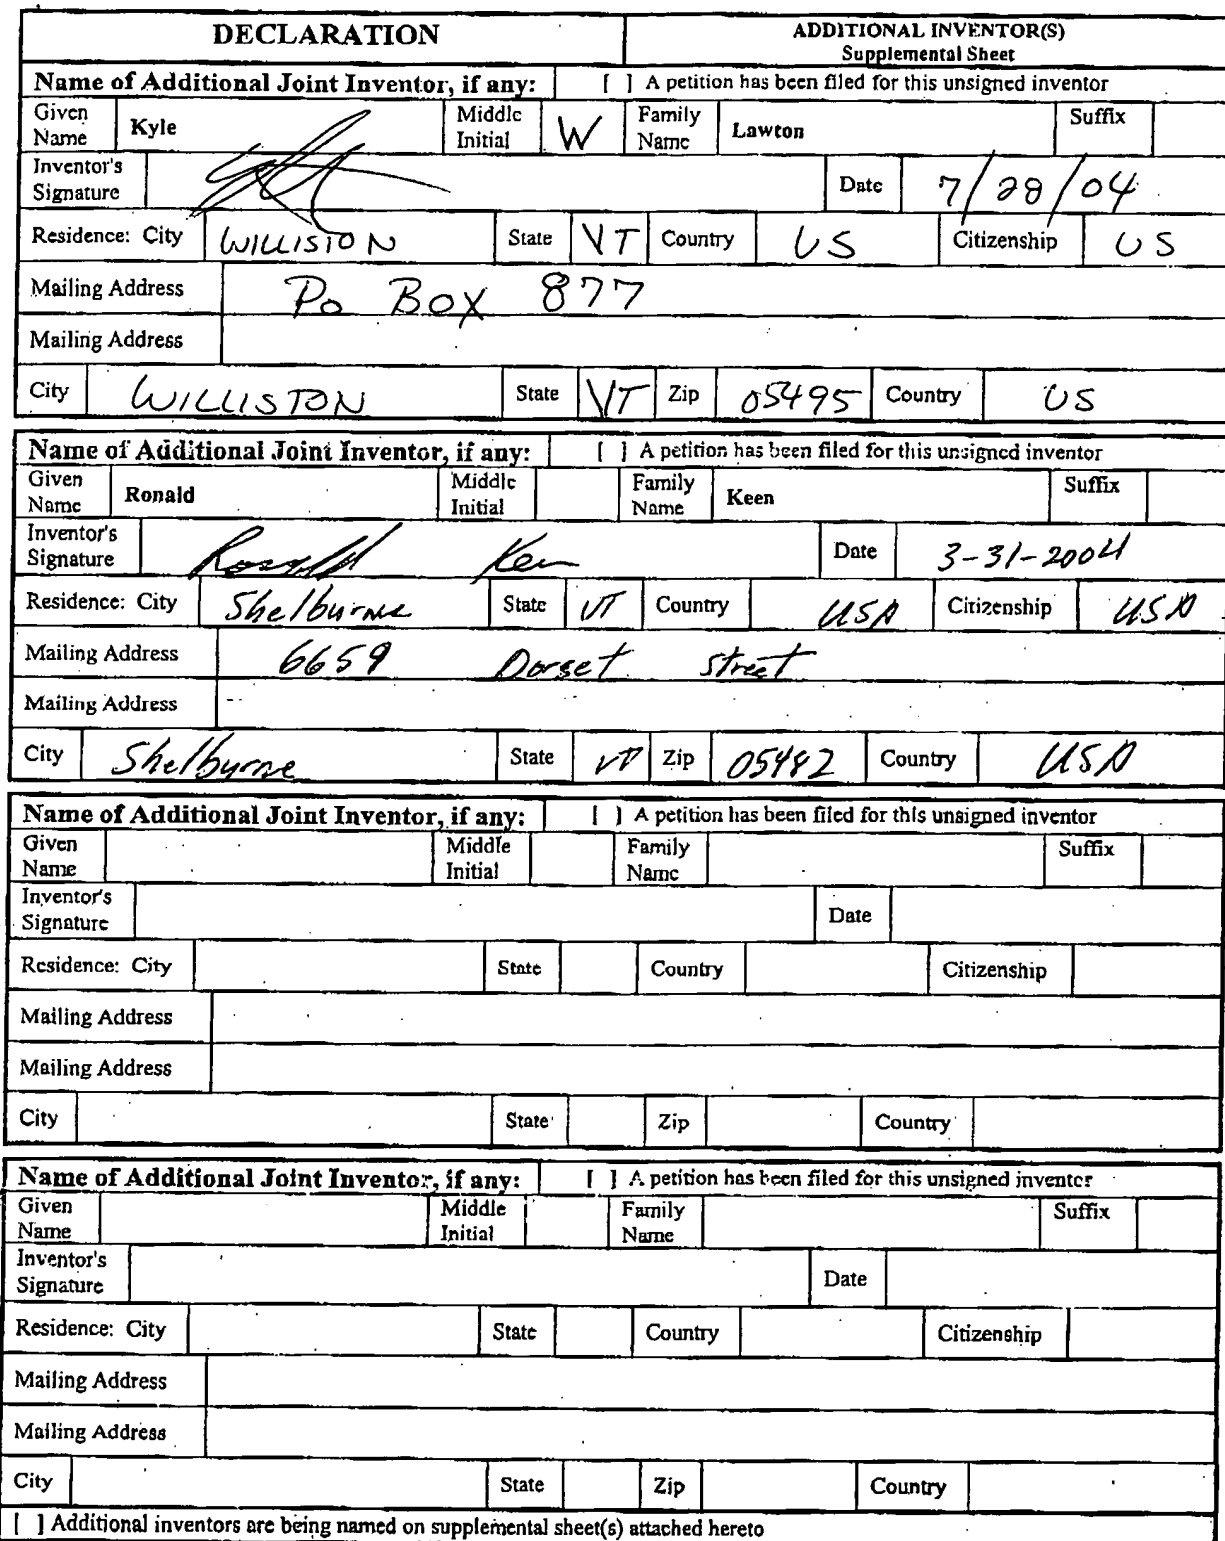 DECLARATION
ADDITIONAL INVENTOR(S)
Supplemental Sheet
Name of Additional Joint Inventor, if any: [ ] A petition has been filed for this unsigned inventor
Given Name Kyle Middle Initial W Family Name Lawton Suffix
Inventor's Signature Date 7/28/04
Residence: City WILLISTON State VT Country US Citizenship US
Mailing Address Po Box 877
Mailing Address
City WILLISTON State VT Zip 05495 Country US
Name of Additional Joint Inventor, if any: [ ] A petition has been filed for this unsigned inventor
Given Name Ronald Middle Initial Family Name Keen Suffix
Inventor's Signature Ronald Keen Date 3-31-2004
Residence: City Shelburne State VT Country USA Citizenship USA
Mailing Address 6659 Dorset Street
Mailing Address
City Shelburne State VT Zip 05482 Country USA
Name of Additional Joint Inventor, if any: [ ] A petition has been filed for this unsigned inventor
Given Name Middle Initial Family Name Suffix
Inventor's Signature Date
Residence: City State Country Citizenship
Mailing Address
Mailing Address
City State Zip Country
Name of Additional Joint Inventor, if any: [ ] A petition has been filed for this unsigned inventor
Given Name Middle Initial Family Name Suffix
Inventor's Signature Date
Residence: City State Country Citizenship
Mailing Address
Mailing Address
City State Zip Country
[ ] Additional inventors are being named on supplemental sheet(s) attached hereto